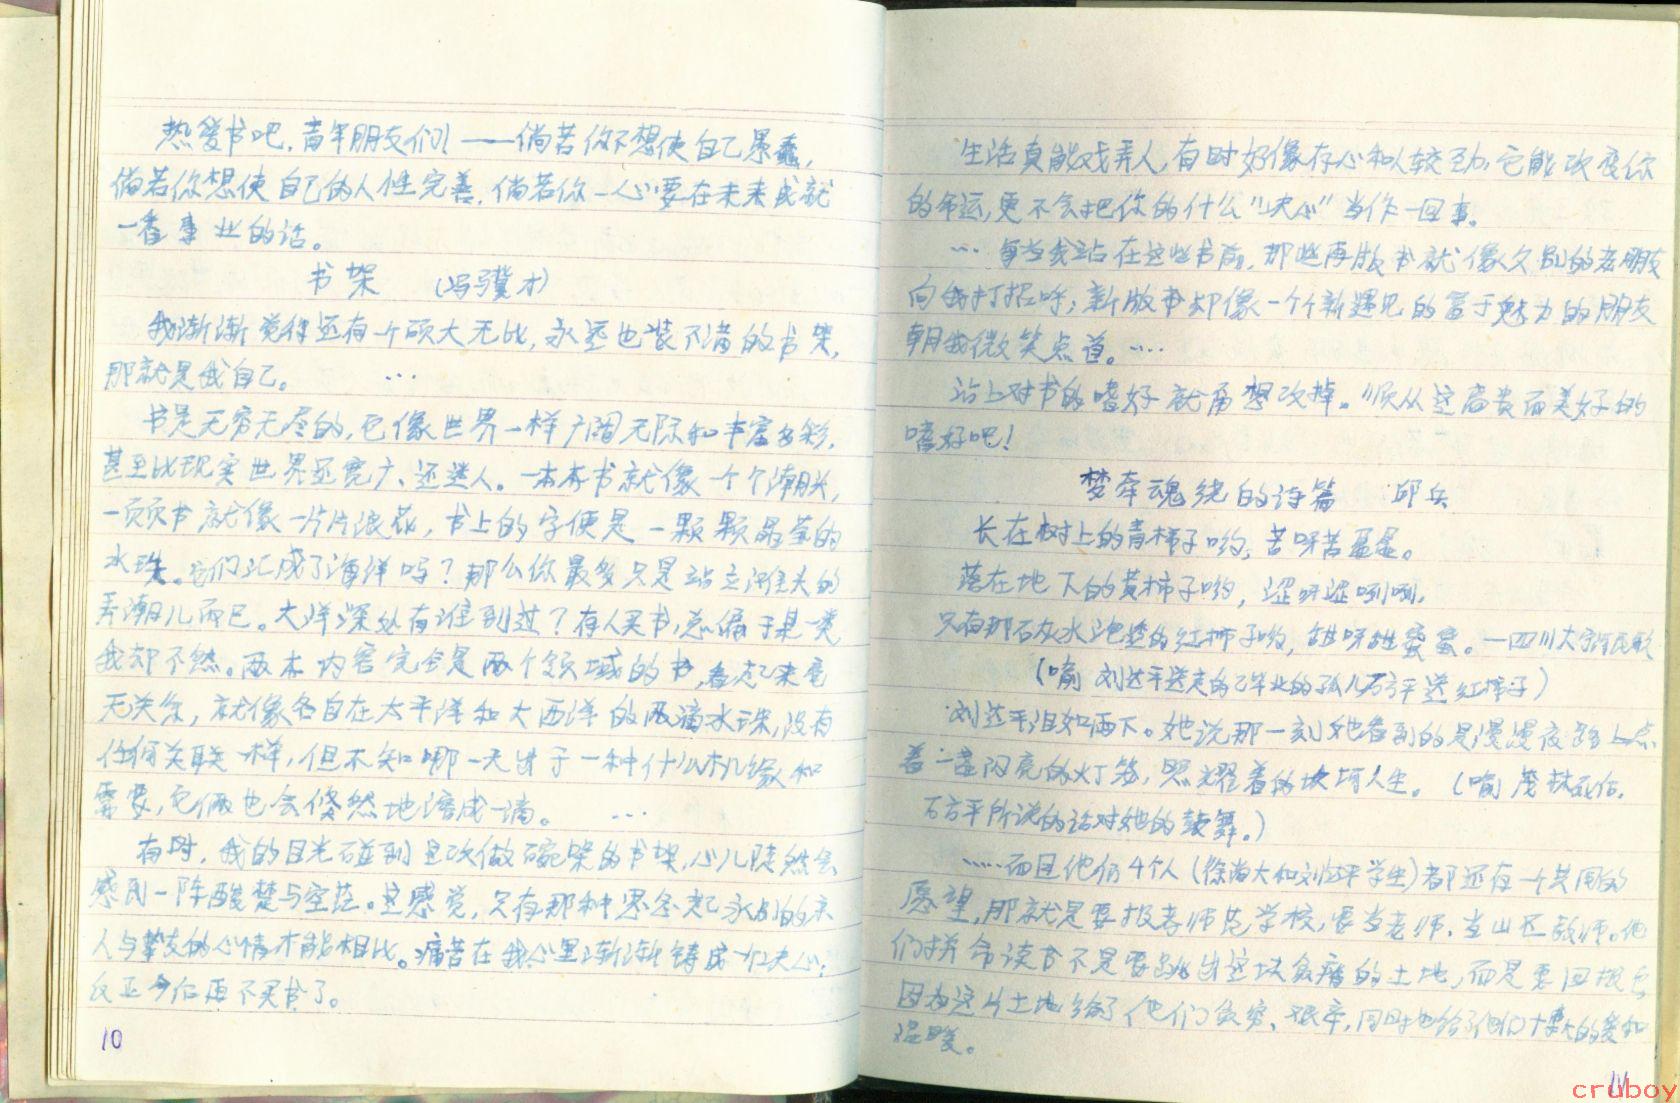 热爱书吧,青年朋友们!——倘若你不想使自己愚蠢,
倘若你想使自己的人性完善,倘若你一心要在未来成就
一番事业的话。
书架 (冯骥才)
我渐渐觉得还有一个硕大无比,永远也装不满的书架,
那就是我自己。 …
书是无穷无尽的,它像世界一样广阔无际和丰富多彩,
甚至比现实世界还宽广、还迷人。一本本书就像一个个潮头,
一页页书就像一片片浪花,书上的字便是一颗颗晶莹的
水珠。它们汇成了海洋吗?那么你最多只是站立滩头的
弄潮儿而已。大洋深处有谁到过?有人买书,总偏于某一类,
我却不然。两本内容完全是两个领域的书,看起来毫
无关系,就像各自在太平洋和大西洋的两滴水珠,没有
任何关联一样,但不知哪一天出于一种什么机缘和
需要,它俩也会倏然地溶成一滴。 …
有时,我的目光碰到已改做碗架的书架,心儿陡然会
感到一阵酸楚与空茫。这感觉,只有那种思念起永别的亲
人与挚友的心情才能相比。痛苦在我心里渐渐铸成一个决心:
反正今后再不买书了。
10
生活真能戏弄人,有时好像存心和人较劲,它能改变你
的命运,更不会把你的什么"决心"当作一回事。
… 每当我站在这些书前,那些再版书就像久别的老朋友
向我打招呼;新版书却像一个个新遇见的富于魅力的朋友
朝我微笑点首。……
沾上对书的嗜好就甭想改掉。顺从这高贵而美好的
嗜好吧!
梦牵魂绕的诗篇 邱兵
长在树上的青柿子哟,苦呀苦
落在地下的黄柿子哟,涩呀涩咧咧,
只有那石灰水泡透的红柿子哟,甜呀甜蜜蜜。—四川大宁河民歌
(喻 刘达平送走的已毕业的孤儿石方平送红柿子)
刘达平泪如雨下。她说那一刻她看到的是漫漫夜路上点
着一盏闪亮的灯笼,照耀着的坎坷人生。(喻
石方平所说的话对她的鼓舞。)
……而且他们4个人(徐尚大和刘达平学生)都还有一个共同的
愿望,那就是要报考师范学校,要当老师,当山区教师。他
们拼命读书不是要跳出这块贫瘠的土地,而是要回报它
因为这片土地给了他们贫穷、艰辛,同时也给了他们博大的爱和
温暖。
11
cruboy